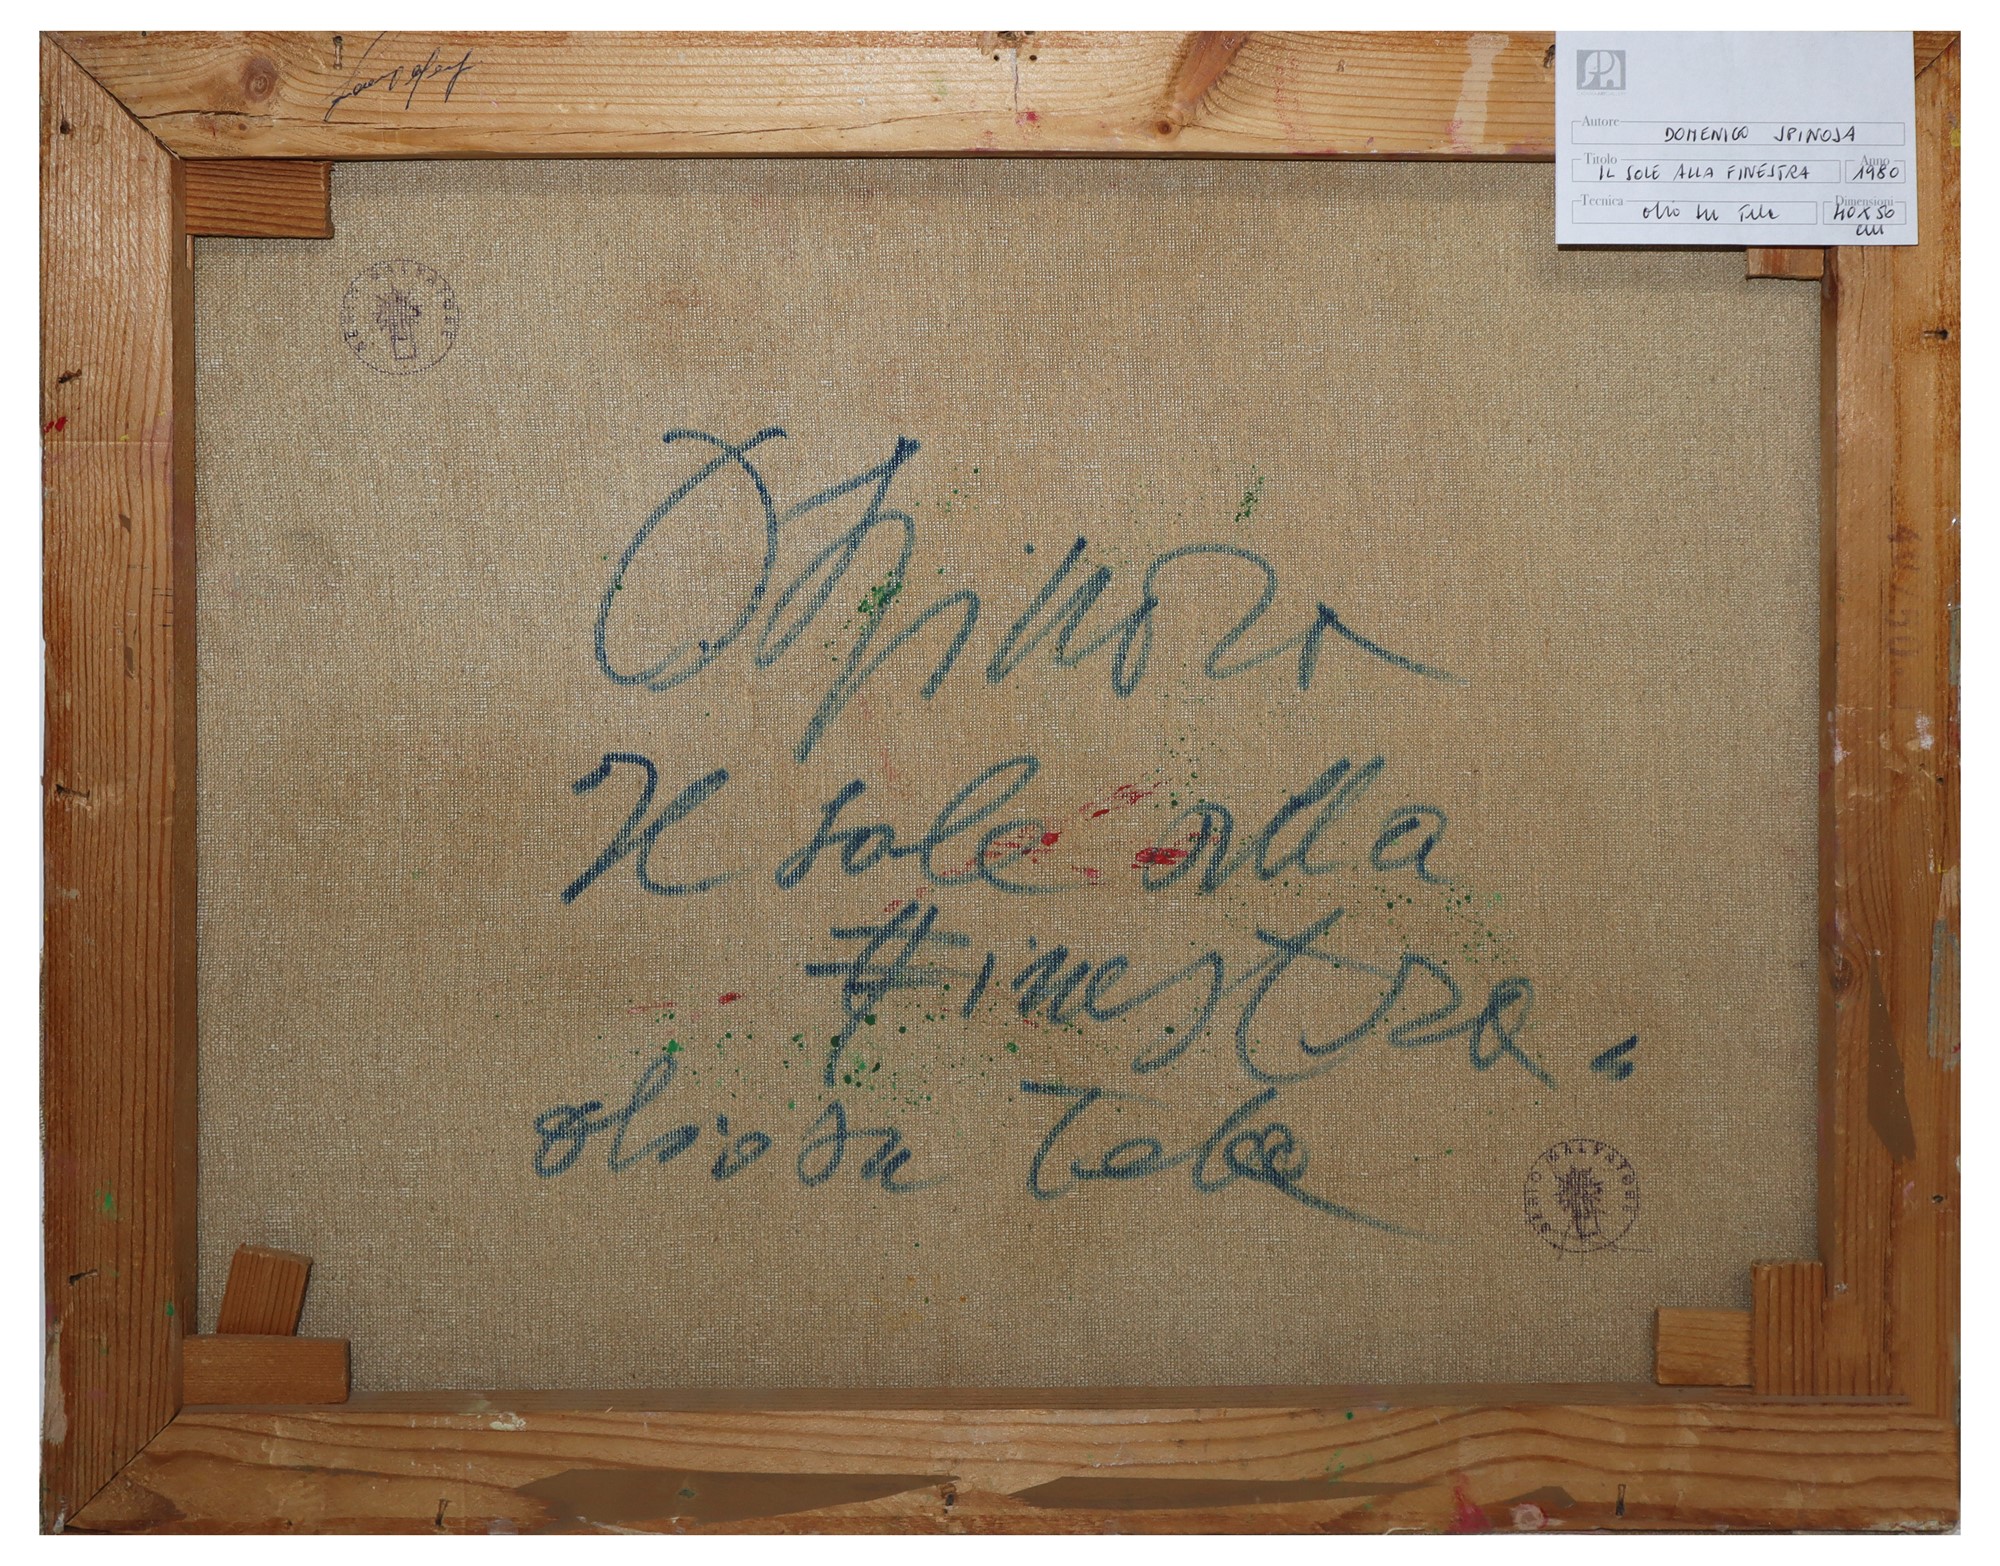 Autore
DOMENICO SPINOSA
Titolo
IL SOLE ALLA FINESTRA
Anno
1980
Tecnica
olio su Tela
Dimensioni
40x50
cm
DSpinosa
Il sole alla
finestra"
olio su Tela